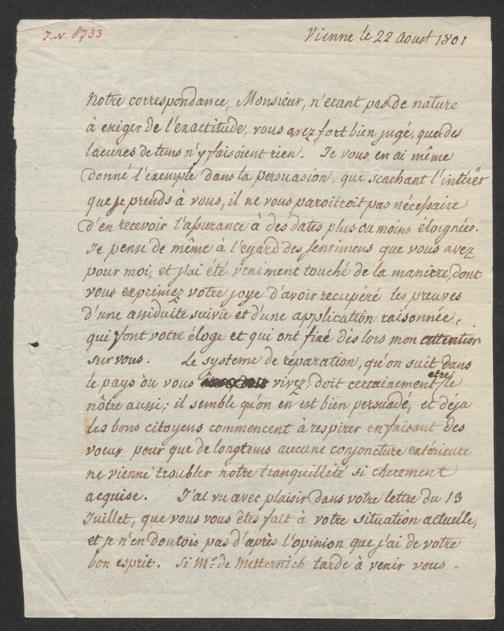 J.N. 8733
Vienne le 22 Aoust 1801
Notre correspondance, Monsieur, n'etant pas de nature
à exiger de l'exactitude, vous avez fort bien jugé, que des
lacunes de tems n'y faisoient rien. Je vous en ai même
donné l'exemple dans la persuasion, que scachant l'intérêt
que je prends à vous, il ne vous paroitroit pas nécessaire
d'en recevoir l'assurance à des dates plus ou moins éloignées.
Je pense de même à l'egard des sentimens que vous avez
pour moi, et j'ai été vraiment touché de la manière, dont
vous exprimez votre joye d'avoir recupéré les preuves
d'une assiduité suivie et d'une application raisonnée,
qui font votre éloge et qui ont fixé dès lors mon attention
sur vous. Le systeme de réparation, qu'on suit dans
le pays où vous vivez, doit certainement etre le
nôtre aussi; il semble qu'on en est bien persuadé, et déja
les bons citoyens commencent à respirer en faisant des
voeux pour que de longtems aucune conjoncture extérieure
ne vienne troubler notre tranquillité si cherement
acquise. J'ai vu avec plaisir dans votre lettre du 13
Juillet, que vous vous êtes fait à votre situation actuelle,
et je n'en doutois pas d'après l'opinion que j'ai de votre
bon esprit. Si Mr. de Metternich tarde à venir vous